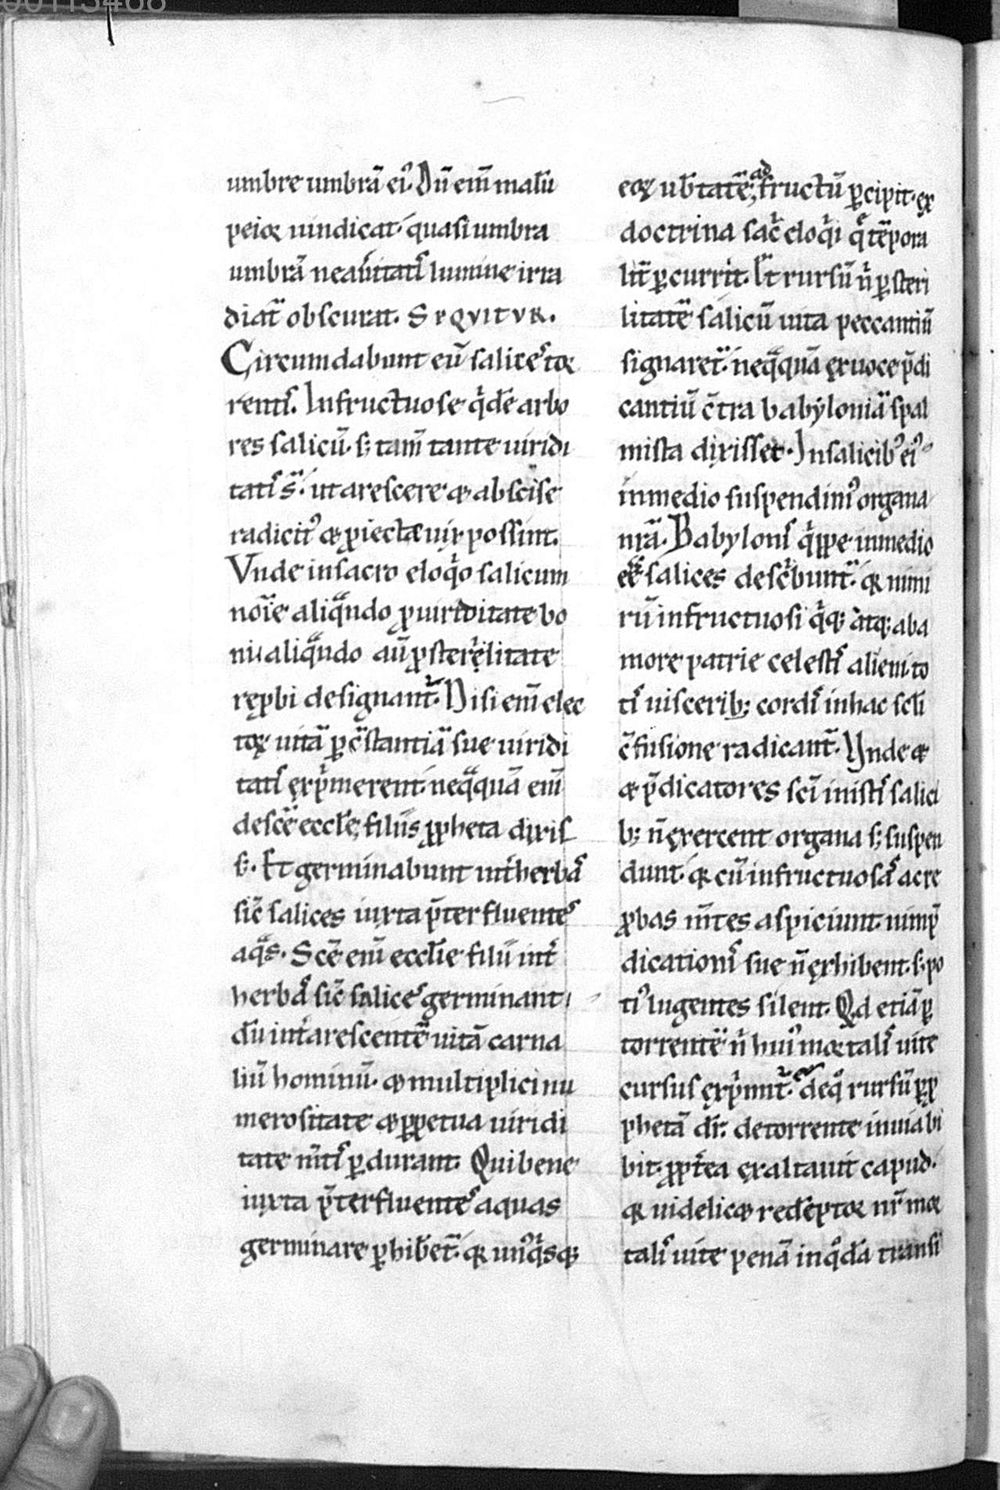 umbre umbrā ei᷒. Dū eni̅ malū
peioꝝ uindicat. quasi umbra
umbrā ne aūitatꝭ lumine irra
diat᷑ obscurat. SEQVITVR.
Circumdabunt eū salices toꝝ
rentꝭ. Infructuose q̇dē arbo
res salicū. s; tam̅ tante uiridi
tatꝭ s᷑. ut arescere & abscise
radicit᷒ & ꝓiecte uix possint.
Vnde in sacro eloq̇o salicum
noīe aliqͣndo ꝓ uiriditate bo
ni. aliqͣndo aū ꝓ sterelitate
reꝓbi designant᷑. Nisi eni̅ elec
toꝝ uitā ꝑ c̄stantiā sue uiridi
tatꝭ exp̍merent. neqͣquā eni̅
de scē eccl̄e filiis ꝓpheta dixis
s;. Et germinabunt int᷑ herbas
sic̄ salices iuxta p̄terfluentes
aqͣs. Scē eni̅ eccl̄ie filii int᷑
herbas sic̄ salices germinant.
dū int᷑ arescentē uitā carna
liū hominū. & multiplici nu
merositate & ꝑpetua uiridi
tate m̄tis ꝑdurant. Qui bene
iuxta p̄terfluentes aquas
germinare ꝑhibent᷑. qꝛ un᷒q̇sq;
eoꝝ ub̄tatē ad fructū ꝑcipit. ex
doctrina sac̄ eloq̇i q̊ tēpora
lit᷑ ꝑcurrit. Et rursū n̍ ꝑ steri
litatē salicū uita peccantiū
signaret᷑. neqͣquā ex uoce p̄di
cantiū c̄tra babyloniā spal
mista dixisset. In salicib᷒ ei᷒
in medio suspendim᷒ organa
nr̄a. Babylonꝭ q̍ppe in medio
ee̅ salices desc̍bunt᷑. qꝛ nimi
rū infructuosi q̍q; atq; ab a
more patrie celestꝭ alieni. to
tꝭ uisceribꝫ cordꝭ in hac scl̄i
c̄fusione radicant᷑. Vnde &
& p̄dicatores sc̄i in istꝭ salici
bꝫ n̄ exercent organa s; suspen
dunt. qꝛ cū infructuosas ac re
ꝓbas m̄tes aspiciunt. uim p̄
dicationꝭ sue n̄ exhibent. s; po
ti᷒ lugentes silent. Qd etiā ꝑ
torrentē n̍ hui᷒ moꝝtalꝭ uite
cursus exp̍mit᷑. de q̊ rursū ꝑ ꝓ
phetā dr̄. de torrente in uia bi
bit. ꝓpt᷑ea exaltauit capud.
qꝛ uidelic& redēptoꝝ nr̄ moꝝ
talꝭ uite penā in q̊dā transi